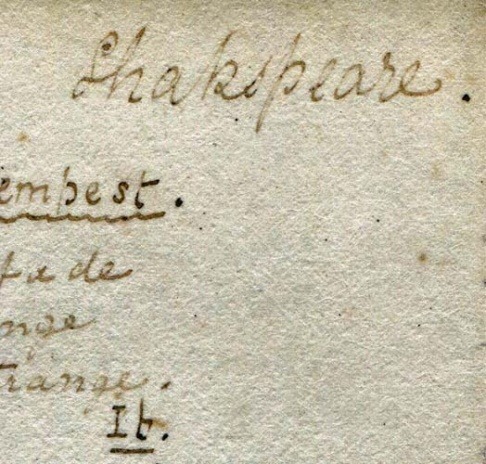 Shakspeare.
empest.
fade
nge
trange.
Ib.